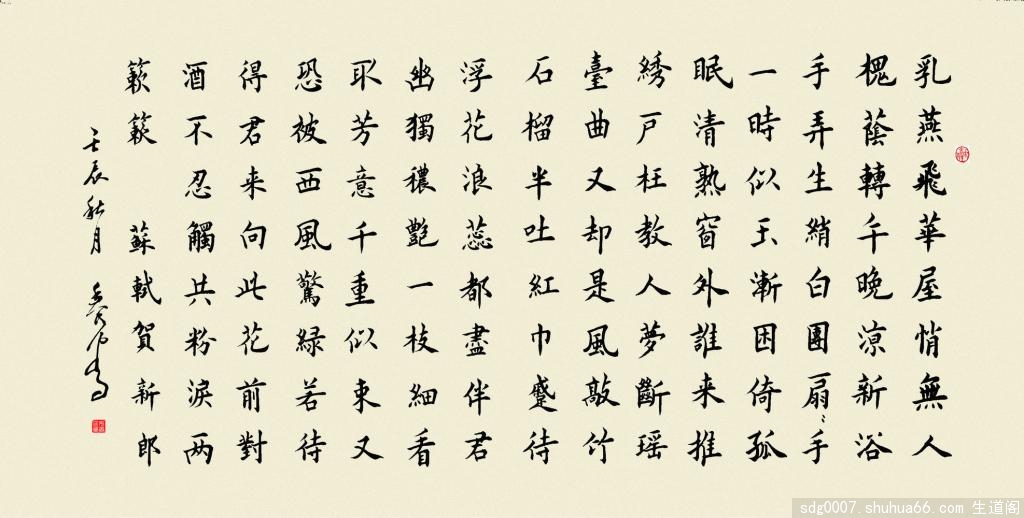 乳燕飛華屋悄無人
槐蔭轉千晚涼新浴
手弄生綃白團扇〻手
一時似玉漸困倚孤
眠清熟窗外誰来推
綉戸枉教人夢斷瑶
臺曲又却是風敲竹
石榴半吐紅巾蹙待
浮花浪蕊都盡伴君
幽獨穠艷一枝細看
取芳意千重似束又
恐被西風驚緑若待
得君来向此花前對
酒不忍觸共粉淚两
簌簌 蘇軾賀新郎
壬辰秋月
sdg0007.shuhua66.com 生道阁